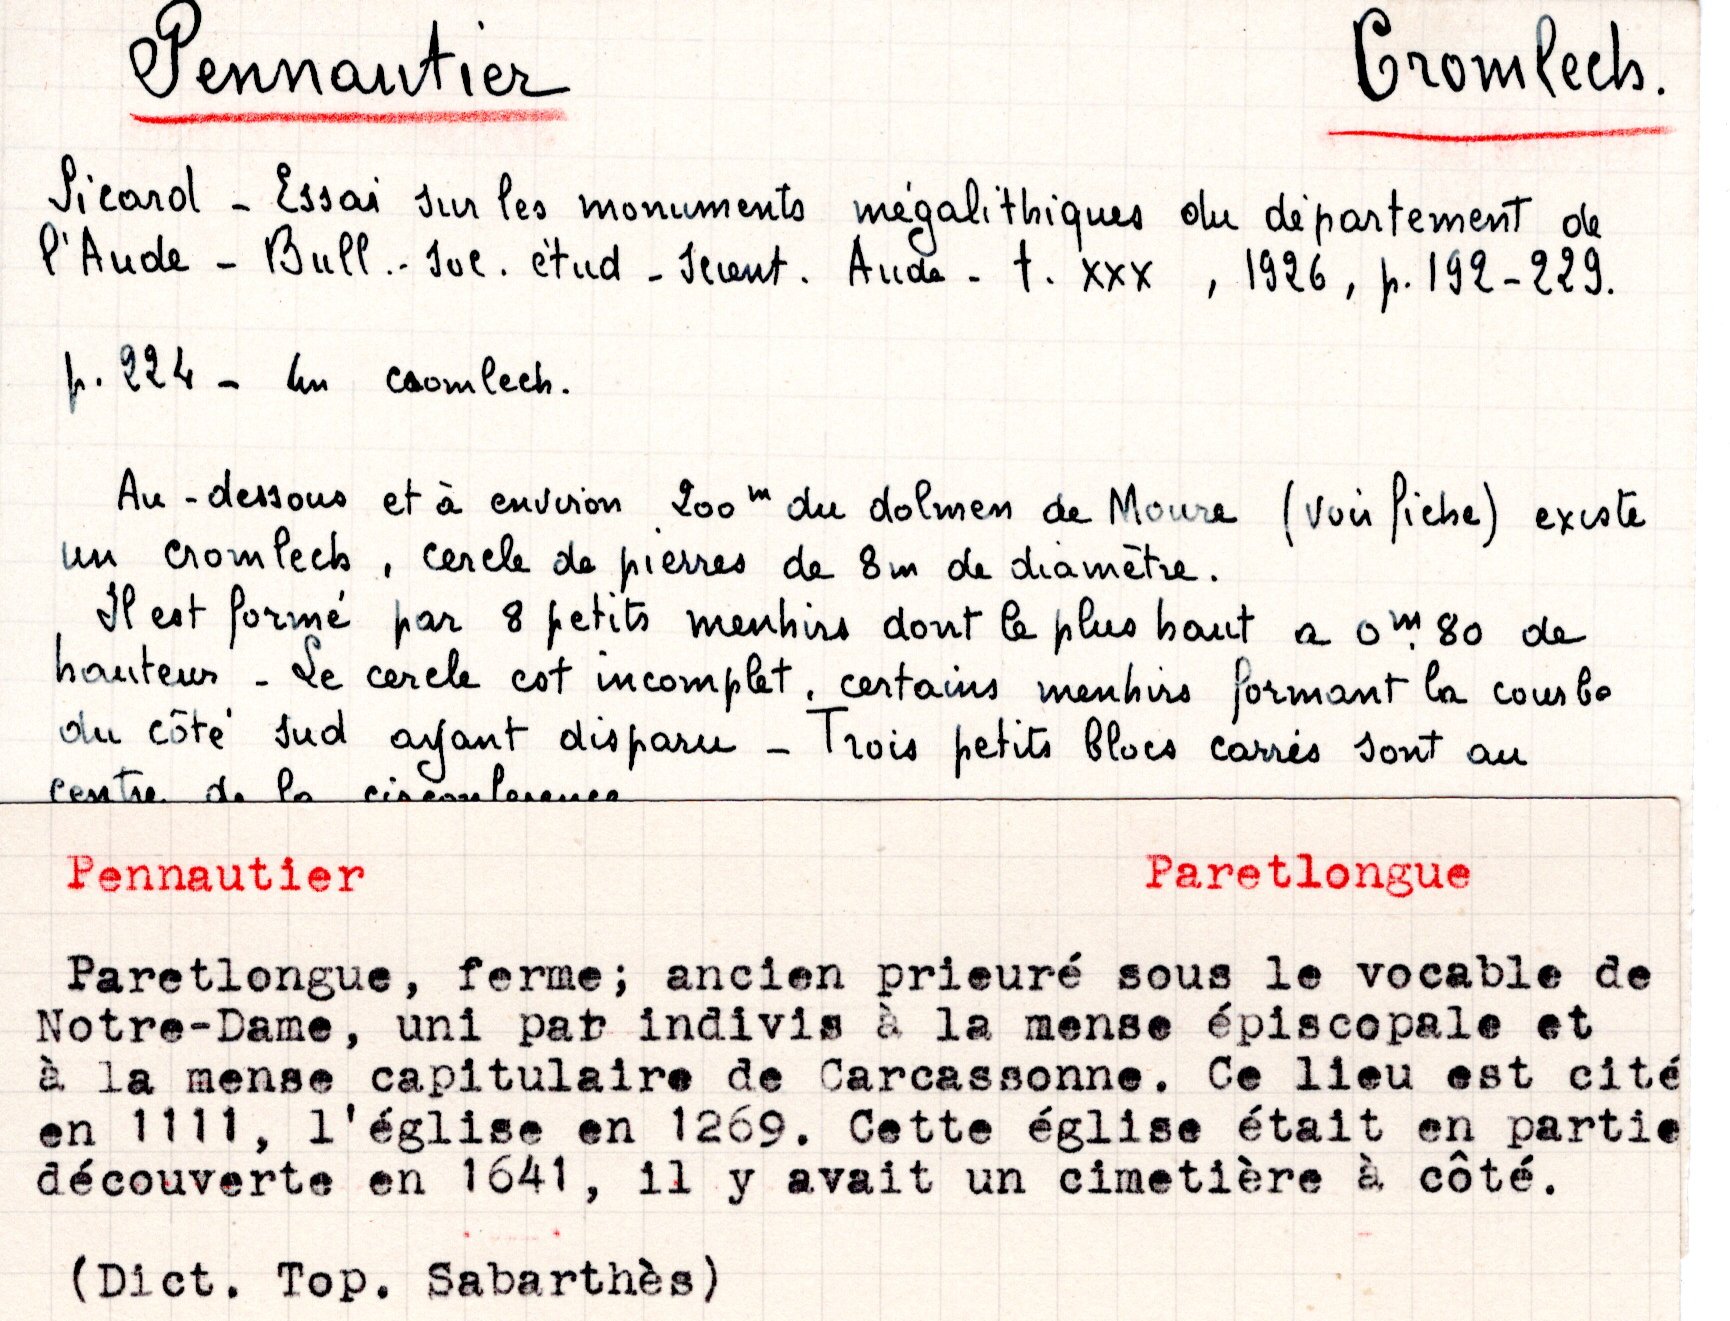 Pennautier Cromlech.
Sicard - Essai sur les monuments mégalithiques du département de
l'Aude - Bull.. Soc. étud - scient. Aude - t. xxx , 1926, p. 192-229.
p. 224 - Un cromlech.
Au-dessous et à environ 200m du dolmen de Moure (voir fiche) existe
un cromlech, cercle de pierres de 8m de diamètre.
Il est formé par 8 petits menhirs dont le plus haut a 0m.80 de
hauteur - Le cercle est incomplet, certains menhirs formant la courbe
du côté sud ayant disparu - Trois petits blocs carrés sont au
centre de la circonference
Pennautier Paretlongue
Paretlongue, ferme; ancien prieuré sous le vocable de
Notre-Dame, uni par indivis à la mense épiscopale et
à la mense capitulaire de Carcassonne. Ce lieu est cité
en 1111, l'église en 1269. Cette église était en partie
découverte en 1641, il y avait un cimetière à côté.
(Dict. Top. Sabarthès)